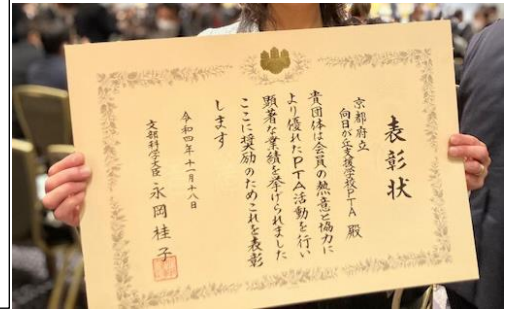 表彰状
京都府立
向日が丘支援学校PTA 殿
貴団体は会員の熱意と協力に
より優れたPTA活動を行い
顕著な業績を挙げられました
ここに奨励のためこれを表彰
します
令和四年十一月十八日
文部科学大臣 永岡桂子